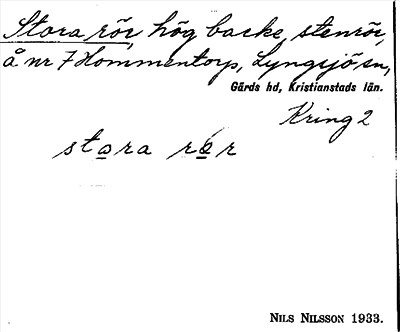 Stora rör, hög backe, stenrör,
å nr 7 Hommentorp, Lyngsjö sn,
Gärds hd, Kristianstads län.
Kring 2
stara rör
Nils Nilsson 1933.